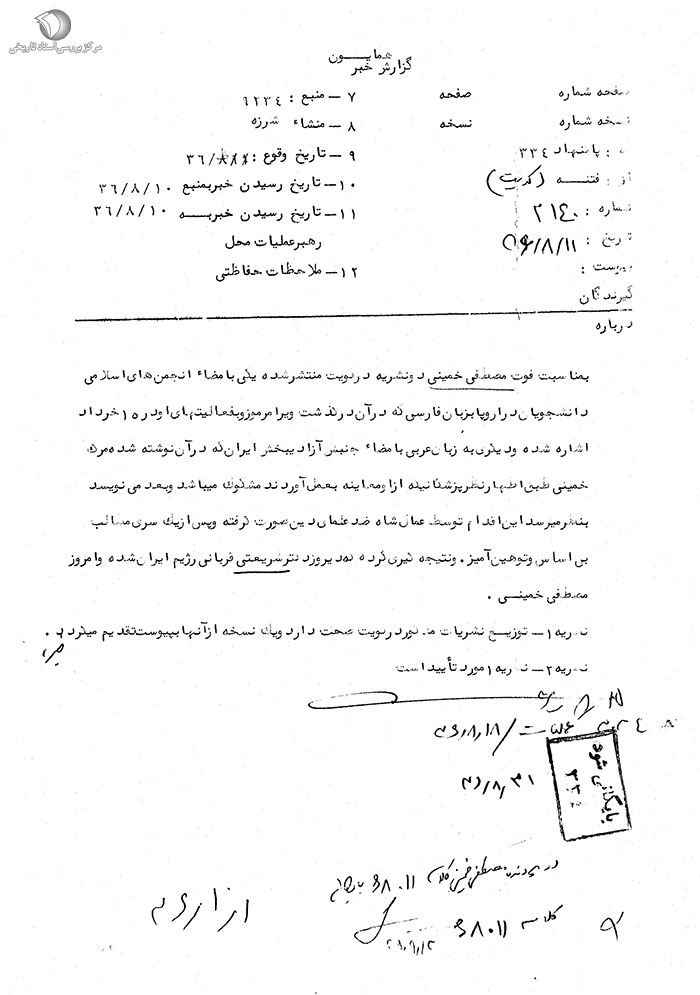 مرکز بررسی اسناد تاریخی
همایون
گزارش خبر
صفحه شماره صفحه ۷ – منبع : ۶۲۳۴
نسخه شماره نسخه ۸ – منشاء شرزه
: پاسنهاد ۳۳٤ ۹ – تاریخ وقوع : ۳۶/
از : فتنه (کویت) ۱۰ – تاریخ رسیدن خبربمنبع ۳۶/۸/۱۰
شماره : ۲۱۴۰ ۱۱ – تاریخ رسیدن خبربه ۳۶/۸/۱۰
تاریخ : ۳۶/۸/۱۱ رهبرعملیات محل
پیوست : ۱۲ – ملاحظات حفاظتی
گیرندگان
درباره
بمناسبت فوت مصطفی خمینی دونشریه درکویت منتشرشده یکی با مضاء انجمن های اسلامی
دانشجویان دراروپا بزبان فارسی که درآن درگذشت ویرا مرموزوبفعالیتهای اودر ۱۵ خرداد
اشاره شده ودیگری به زبان عربی با مضاء جنبش آزادیبخش ایران که درآن نوشته شده مرگ
خمینی طبق اظهارنظرپزشکانیکه ازاومعاینه بعمل آوردند مشکوک میباشد وبعد می نویسد
بنظرمیرسد این اقدام توسط عمال شاه ضد علمای دین صورت گرفته وپس ازیک سری مطالب
بی اساس وتوهین آمیز . ونتیجه گیری کرده که دیروز دکترشریعتی قربانی رژیم ایران شده وامروز
مصطفی خمینی .
نظریه ۱ – توزیع نشریات مذکوردرکویت صحت دارد ویک نسخه ازآنها بپیوست تقدیم میگردد .
نظریه ۲ – نظریه ۱ مورد تأیید است
۳۶/۸/۱۸
۳۶/۸/۲۱
بایگانی شود
۳۳٤
در پرونده مصطفی خمینی کلاسه ۳۸۰۱۱ بایگانی
کلاسه ۳۸۰۱۱